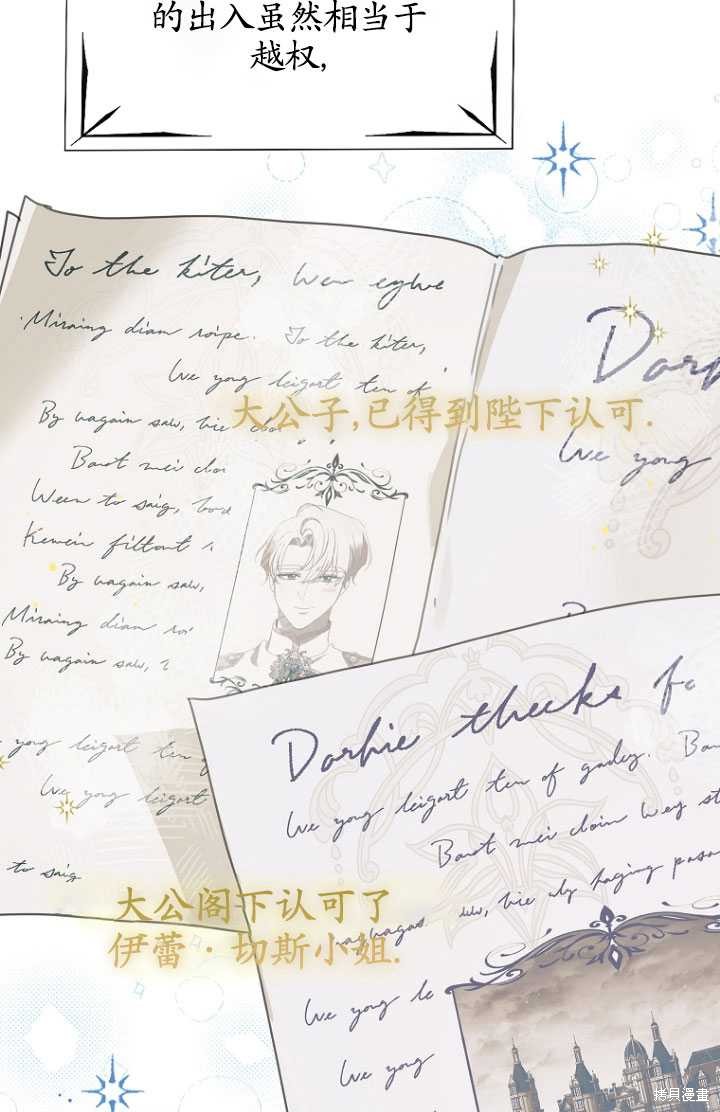 的出入虽然相当于
越权,
To the kiter, Wen eglve
Miraing diam roipe. To the kiter,
We yong leigort ten of
大公子,已得到陛下认可.
By wagain saw, bie
Baot mei cloi
Ween to saig,
Kemein filtont
By wagain saw,
Miraing diam roi
By wagain saw,
yong leigort ten
We yong leigort
to saig
We yong
Dorhie thecks fo
We yong leigort ten of gadey. Bao
Baot mei cloin wey st
bie uly haging
大公阁下认可了
伊蕾·切斯小姐.
We yong le
We yong
拷貝漫畫